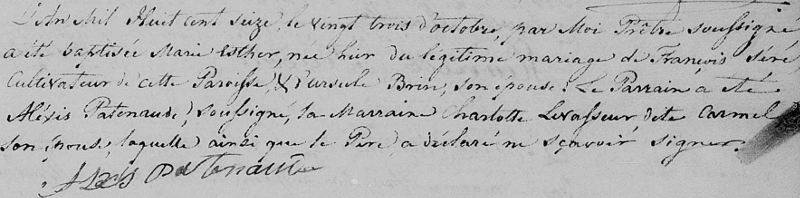 L'An Mil Huit cent Seize, le vingt trois d'octobre, par Moi Prêtre soussigné
a été baptisée Marie Esther, née hier du légitime mariage de François Séré,
Cultivateur de cette Paroisse, & d'Ursule Brin, son épouse. Le Parrain a été
Aléxis Patenaude, soussigné, la Marraine Charlotte Levasseur dite Carmel
son épouse, laquelle ainsi que le Pere, a déclaré ne sçavoir signer.
Alexis Patenaude